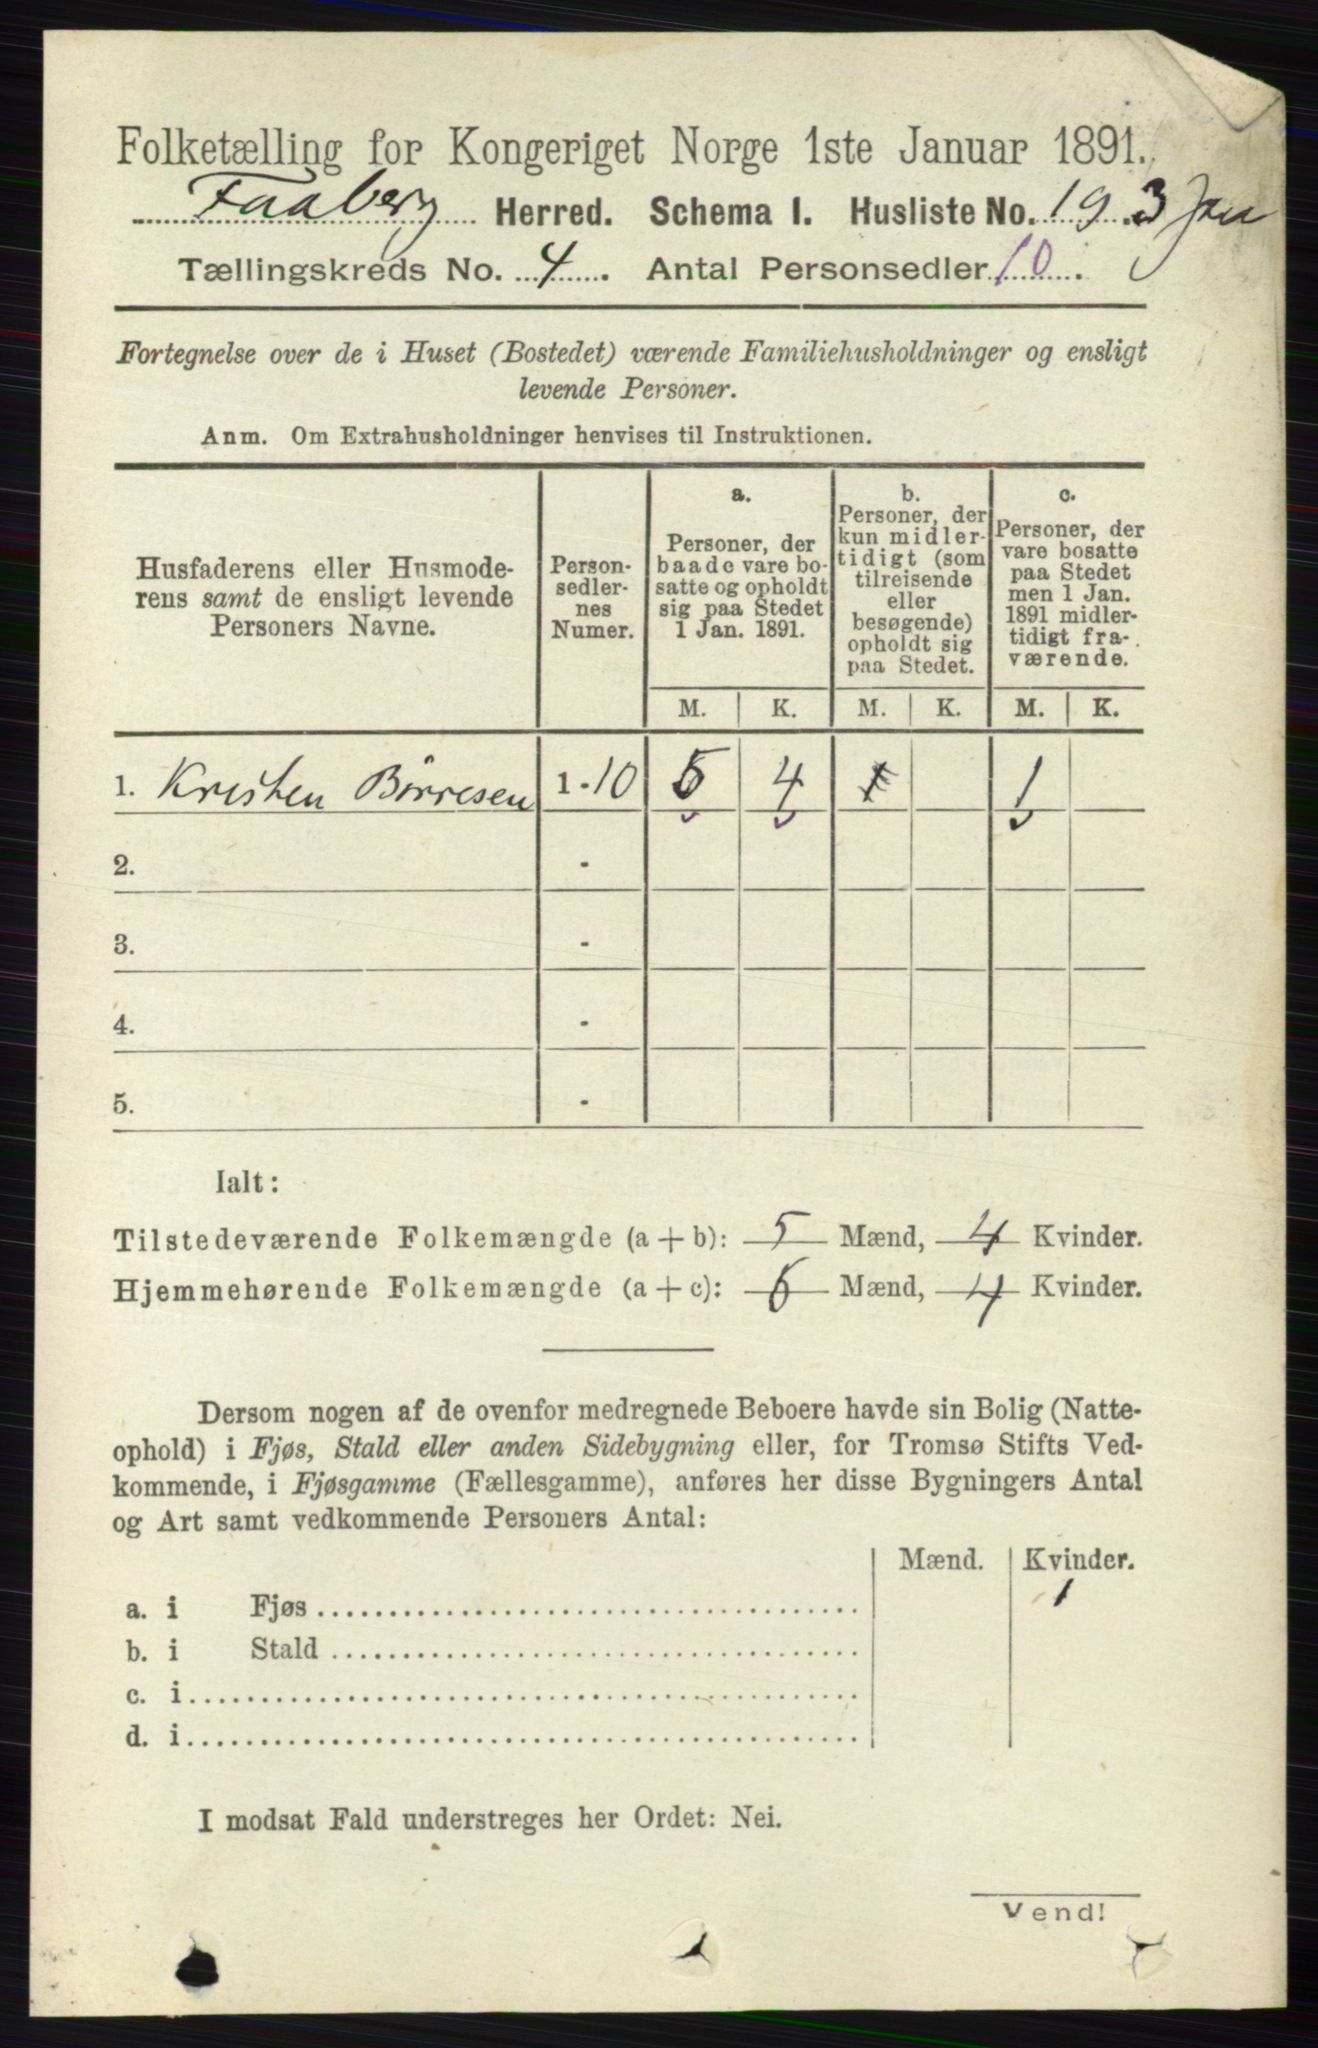 Folketælling for Kongeriget Norge 1ste Januar 1891.
Faaberg Herred. Schema 1. Husliste No. 19. 3 Jan
Tællingskreds No. 4. Antal Personsedler 10.
Fortegnelse over de i Huset (Bostedet) værende Familiehusholdninger og ensligt
levende Personer.
Anm. Om Extrahusholdninger henvises til Instruktionen.
Husfaderens eller Husmode-
rens samt de ensligt levende
Personers Navne.
Person-
sedler-
nes
Numer.
a.
Personer, der
baade vare bo-
satte og opholdt
sig paa Stedet
1 Jan. 1891.
b.
Personer, der
kun midler-
tidigt (som
tilreisende
eller
besøgende)
opholdt sig
paa Stedet.
c.
Personer, der
vare bosatte
paa Stedet
men 1 Jan.
1891 midler-
tidigt fra-
værende.
M. K. M. K. M. K.
1. Kristen Börresen 1 - 10 5 4 1 1
2. -
3. -
4. -
5. -
Ialt:
Tilstedeværende Folkemængde (a + b): 5 Mænd, 4 Kvinder.
Hjemmehørende Folkemængde (a + c): 6 Mænd, 4 Kvinder.
Dersom nogen af de ovenfor medregnede Beboere havde sin Bolig (Natte-
ophold) i Fjøs, Stald eller anden Sidebygning eller, for Tromsø Stifts Ved-
kommende, i Fjøsgamme (Fællesgamme), anføres her disse Bygningers Antal
og Art samt vedkommende Personers Antal:
Mænd. Kvinder.
a. i Fjøs 1
b. i Stald
c. i
d. i
I modsat Fald understreges her Ordet: Nei.
Vend!